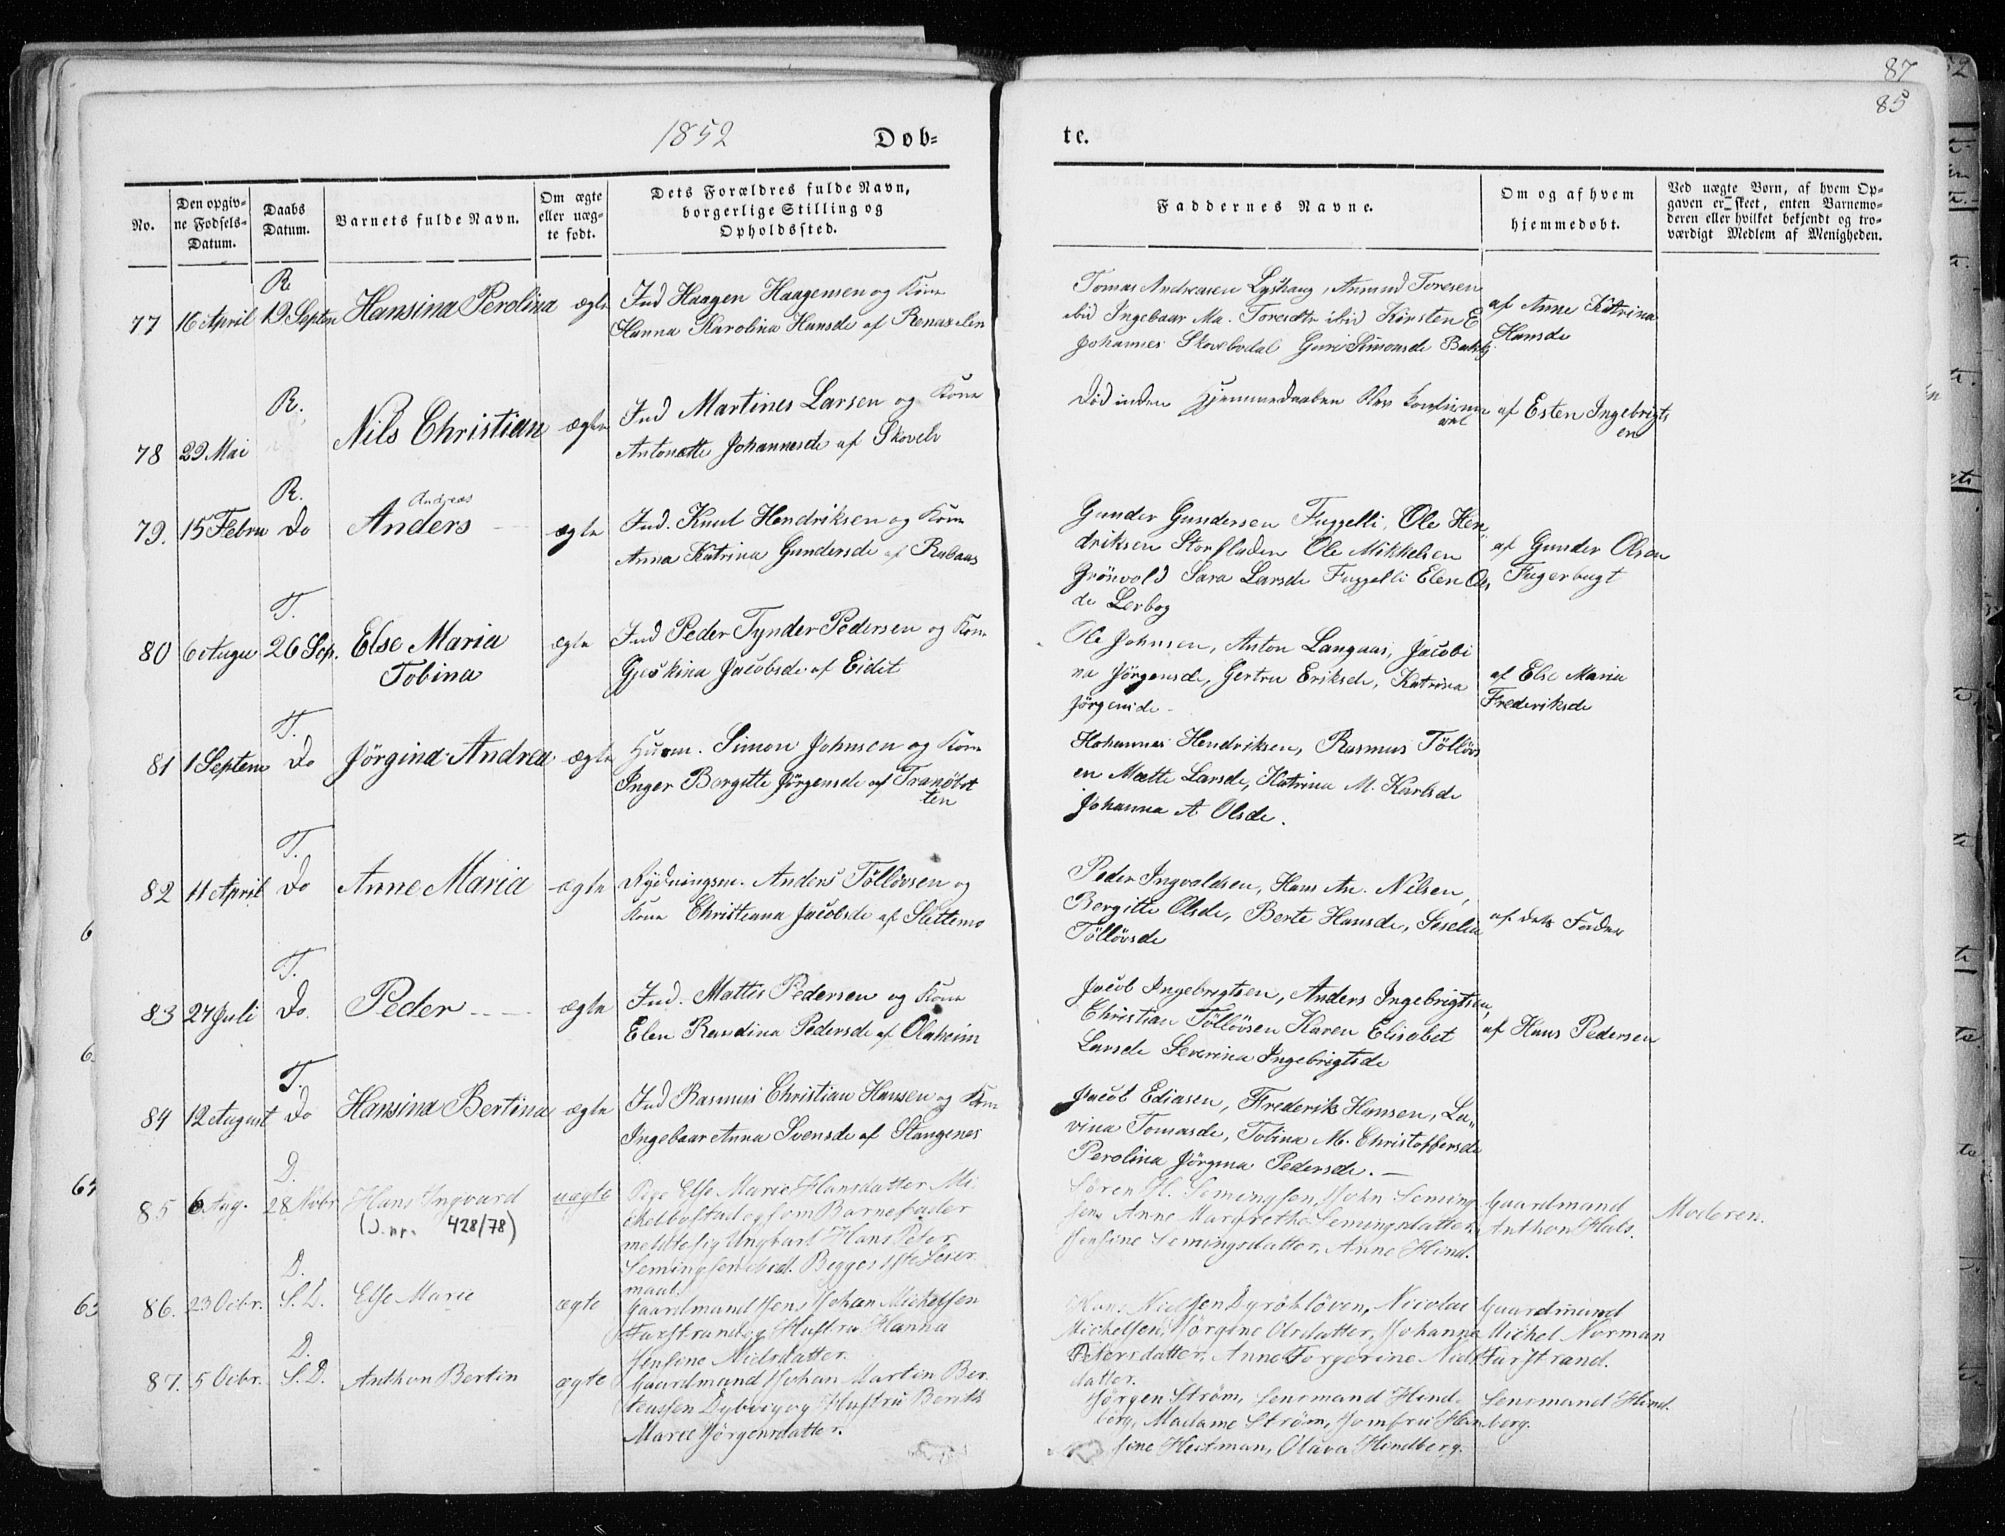 87
85
1852 Døb-
te.
No.
Den opgiv-
ne Fødsels-
Datum.
Daabs
Datum.
Barnets fulde Navn.
Om ægte
eller uæg-
te født.
Dets Forældres fulde Navn,
borgerlige Stilling og
Opholdssted.
Faddernes Navne.
Om og af hvem
hjemmedøbt.
Ved uægte Børn, af hvem Op-
gaven er skeet, enten Barnemo-
deren eller hvilket bekjendt og tro-
værdigt Medlem af Menigheden.
R.
77 16 April 19 Septem Hansina Perolina ægte
Ind Haagen Haagensen og Kone
Hanna Karolina Hansd af
Tomas Andreasen Amund Toresen
ibid Ingebaar Ma. Toresdtr ibid Kirsten E
Johannes Skovbodal Guri Simonsd
af Anne Katrina
Hansde
R.
78 29 Mai Nils Christian ægte
Ind Martines Larsen og Kone
Antonette Johannesde af Skovelv
Død inden Hjemmedaaben blev
af Esten Ingebrigts
en
R.
79. 15 Febru Do Andreas
Anders ægte
Ind. Knut Hendriksen og Kone
Anna Katrina Gundersde af Rabaas
Gunder Gundersen Fuggelli, Ole Hen,
driksen Storfladen Ole Mikkelsen
Grönvold Sara Larsde Fuggelli Elen Ols
de Lerbog
af Gunder Olsen
Fugerbugt
T.
80 6 Augu 26 Sep. Else Maria
Tobina ægte
Ind Peder Tynder Pedersen og Kone
Gjeskina Jacobsde af Eidet
Ole Johnsen, Anton Langaas, Jacobi
na Jörgensde, Gertru Eriksde, Katrina
Jörgensde
af Else Maria
Frederiksde
T.
81 1 Septem Do Jörgina Andrea ægte
Husm. Simon Johnsen og Kone
Inger Bergitte Jörgensde af Tranöbot
ten
Hohannes Hendriksen, Rasmus Töllövs
en Mætte Larsde, Katrina M. Karlsde
Johanna A Olsde.
T.
82 11 April Do Anne Maria ægte
Rydningsm. Anders Töllövsen og
Kone Christiana Jacobsde af Slettemo
Peder Ingvaldsen, Hans An. Nilsen,
Bergitte Olsde, Berte Hansde, Siselia
Töllövsde
af dets Fader
T.
83 27 Juli Do. Peder ægte
Ind. Mattis Pedersen og Kone
Elen Randina Pedersde af Olaheim
Jacob Ingebrigtsen, Anders Ingebrigtsen,
Christian Töllövsen Karen Elisabet
Larsde Severina Ingebrigtsde
af Hans Pedersen
T.
84 12 August Do Hansina Bertina ægte
Ind Rasmus Christian Hansen og Kone
Ingebaar Anna Svensde af Stangenes
Jacob Ediasen, Frederik Hansen, La„
vina Tomasde, Tobina M. Christoffersde
Perolina Jörgina Pedersde.
D.
85 6 Aug. 28 Novbr Hans Ingvard
(J.nr. 428/78) uægte
Pige Else Marie Hansdatter Mi-
chelbostad og som Barnefader
meldte sig Ungkarl Hans Peder
Semingsen ibid. Begges 1ste Leier
maal.
Sören H. Semingsen, John Seming
sen, Anne Margrethe Semingsdatter.
Jensine Semingsdatter, Anne Hind.
Gaardmand
Anthon Hals.
Moderen.
D.
86. 23 Octbr. S.D. Else Marie ægte
Gaardmand Jens Johan Michelsen
Farstrand og Hustru Hanna
Jensine Nielsdatter.
Hans Nielsen Dyröklöven, Nicolai
Michelsen, Jörgine Olsdatter, Johanne
Petersdatter, Anne Torgerine Niels
datter.
Gaardmand
Michel Norman
Farstrand.
D.
87. 5 Octbr. S.D. Anthon Bertin ægte
Gaardmand Johan Martin Ber
teussen Dybvig og Hustru Berith
Marie Jörgensdatter.
Jörgen Ström, Lensmand Hind-
berg, Madame Ström, Jomfru
sine Heitman, Olava Hindberg.
Lensmand Hind.
berg.